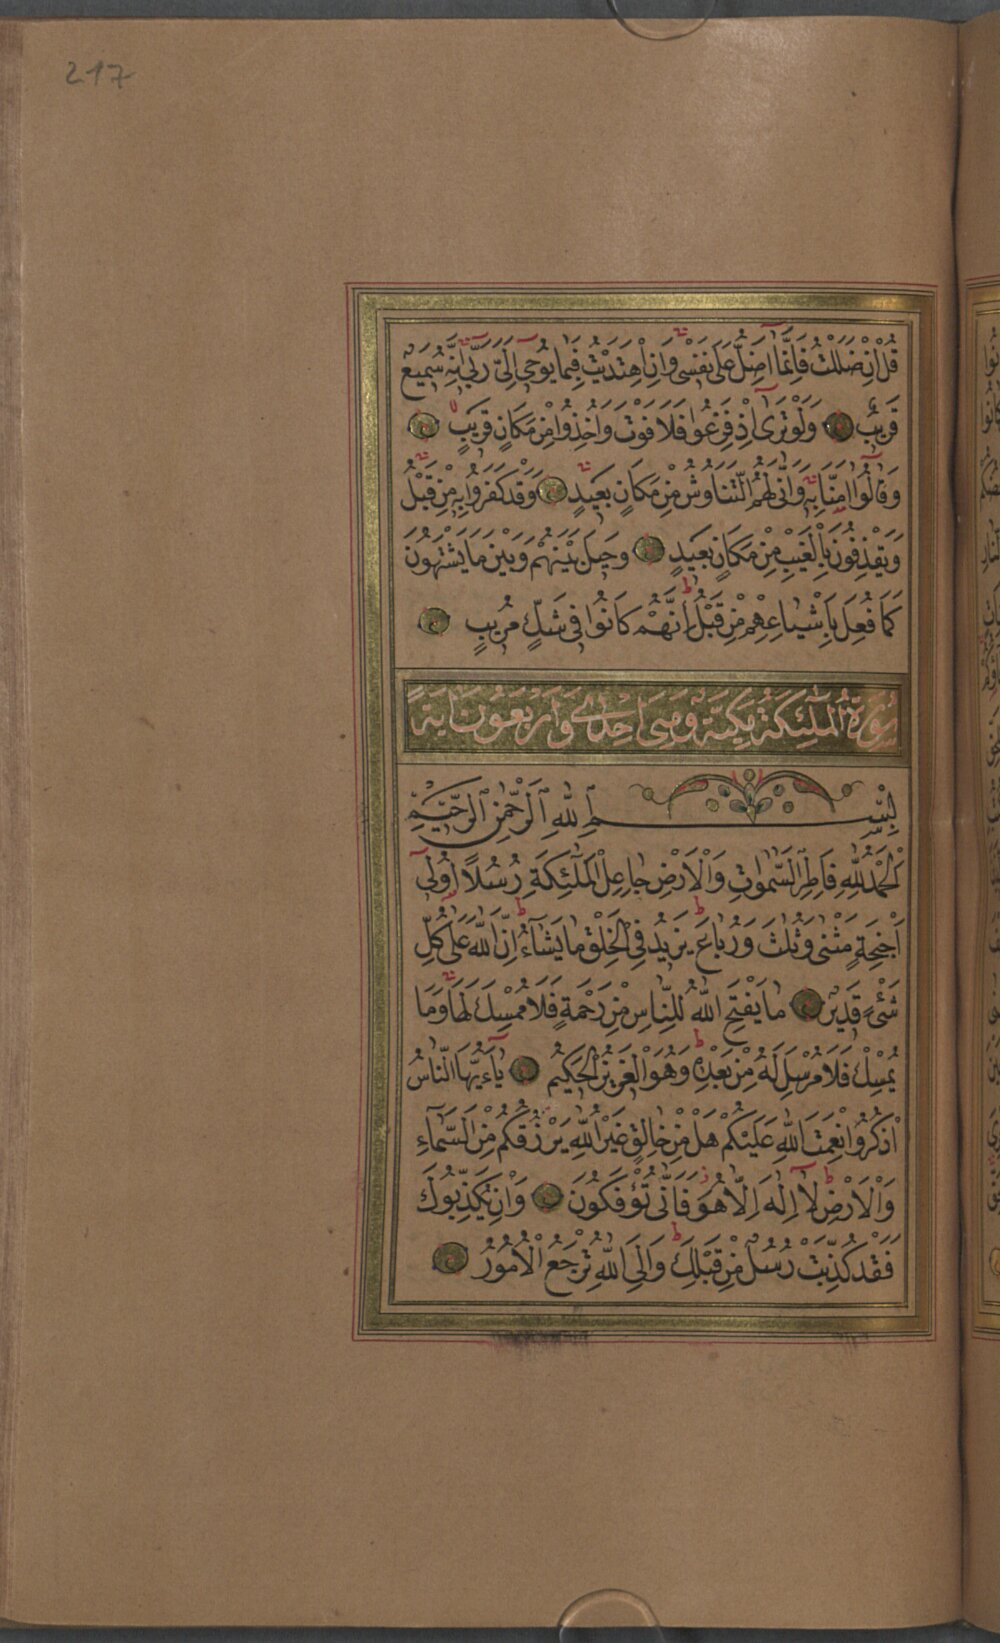 217
قُلْ اِنْ ضَلَلْتُ فَاِنَّمَا اَضِلُّ عَلٰى نَفْسٖى وَاِنِ اهْتَدَيْتُ فَبِمَا يُوحٖى اِلَىَّ رَبّٖى اِنَّهُ سَمٖيعٌ
قَرٖيبٌ وَلَوْ تَرٰى اِذْ فَزِعُوا فَلَا فَوْتَ وَاُخِذُوا مِنْ مَكَانٍ قَرٖيبٍ
وَقَالُوا اٰمَنَّا بِهٖ وَاَنّٰى لَهُمُ التَّنَاوُشُ مِنْ مَكَانٍ بَعٖيدٍ وَقَدْ كَفَرُوا بِهٖ مِنْ قَبْلُ
وَيَقْذِفُونَ بِالْغَيْبِ مِنْ مَكَانٍ بَعٖيدٍ وَحٖيلَ بَيْنَهُمْ وَبَيْنَ مَا يَشْتَهُونَ
كَمَا فُعِلَ بِاَشْيَاعِهِمْ مِنْ قَبْلُ اِنَّهُمْ كَانُوا فٖى شَكٍّ مُرٖيبٍ
سُورَةُ الْمَلٰئِكَةِ مَكِّيَّةٌ وَهِىَ اِحْدٰى وَاَرْبَعُونَ اٰيَةً
بِسْمِ اللّٰهِ الرَّحْمٰنِ الرَّحٖيمِ
اَلْحَمْدُ لِلّٰهِ فَاطِرِ السَّمٰوَاتِ وَالْاَرْضِ جَاعِلِ الْمَلٰئِكَةِ رُسُلًا اُولٖى
اَجْنِحَةٍ مَثْنٰى وَثُلٰثَ وَرُبَاعَ يَزٖيدُ فِى الْخَلْقِ مَا يَشَاءُ اِنَّ اللّٰهَ عَلٰى كُلِّ
شَىْءٍ قَدٖيرٌ مَا يَفْتَحِ اللّٰهُ لِلنَّاسِ مِنْ رَحْمَةٍ فَلَا مُمْسِكَ لَهَا وَمَا
يُمْسِكْ فَلَا مُرْسِلَ لَهُ مِنْ بَعْدِهٖ وَهُوَ الْعَزٖيزُ الْحَكٖيمُ يَاءَيُّهَا النَّاسُ
اذْكُرُوا نِعْمَتَ اللّٰهِ عَلَيْكُمْ هَلْ مِنْ خَالِقٍ غَيْرُ اللّٰهِ يَرْزُقُكُمْ مِنَ السَّمَاءِ
وَالْاَرْضِ لَا اِلٰهَ اِلَّا هُوَ فَاَنّٰى تُؤْفَكُونَ وَاِنْ يُكَذِّبُوكَ
فَقَدْ كُذِّبَتْ رُسُلٌ مِنْ قَبْلِكَ وَاِلَى اللّٰهِ تُرْجَعُ الْاُمُورُ